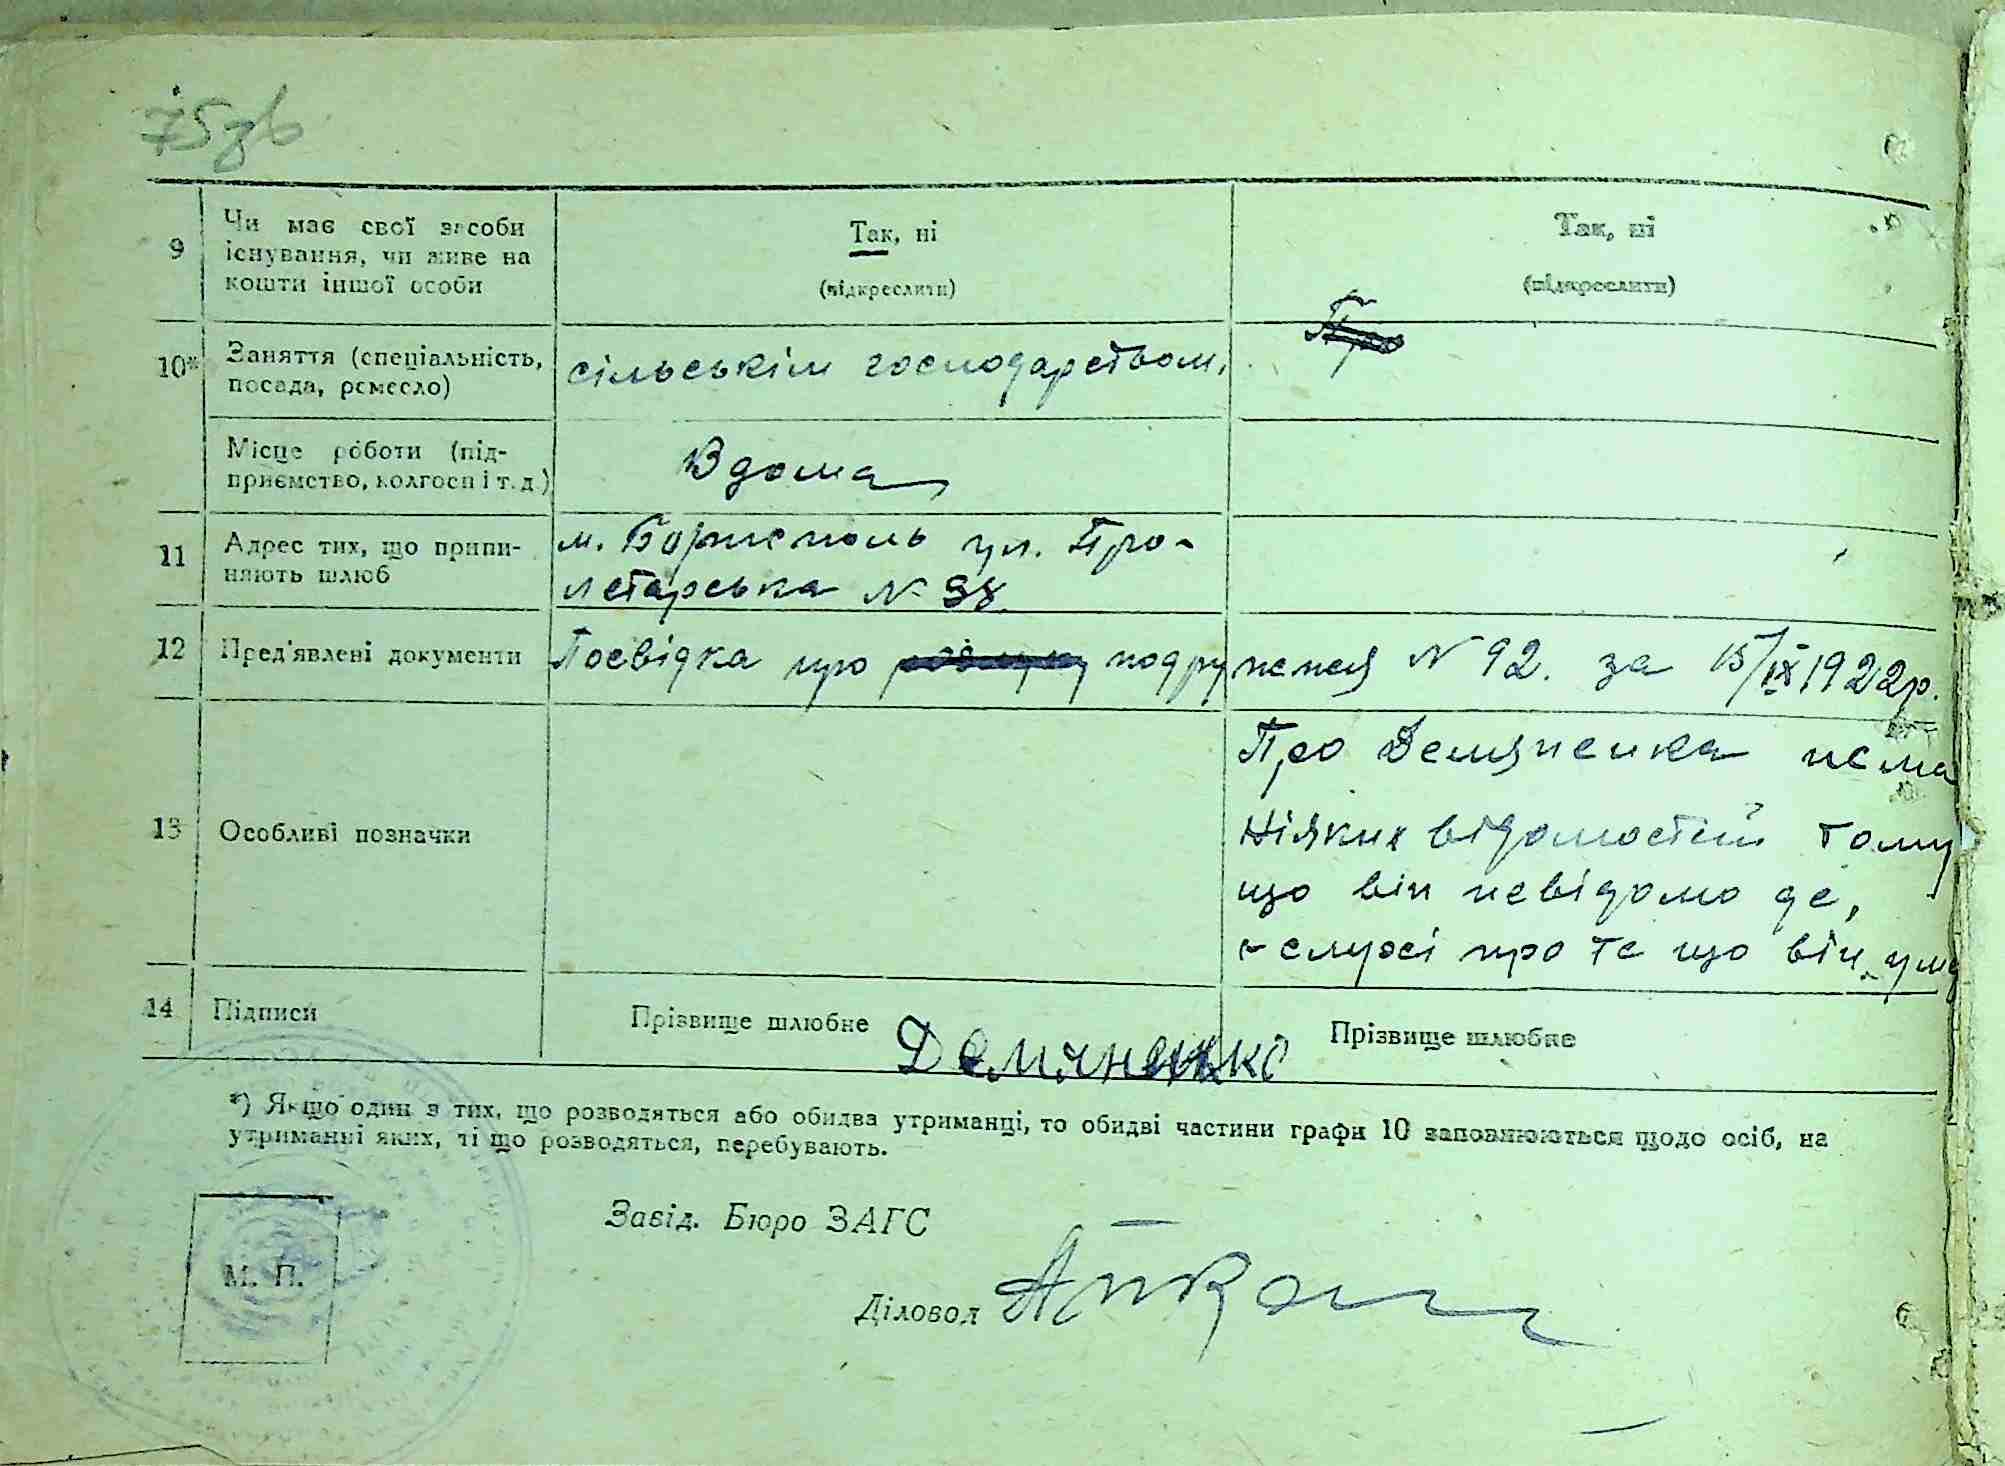 75зв
9 Чи має свої засоби існування, чи живе на кошти іншої особи
Так, ні
(підкреслити)
Так, ні
(підкреслити)
10* Заняття (спеціальність, посада, ремесло)
сільськім господарством.
Про
Місце роботи (підприємство, колгосп і т. д.)
Вдома
11 Адрес тих, що припиняють шлюб
м. Бориспіль ул. Про-
летарська № 38.
12 Пред'явлені документи
Посвідка про розлуку подруження № 92. за 15/IX 1922р.
13 Особливі позначки
Про Демяненка нема
ніяких відомостей тому
що він невідомо де,
є слухі про те що він
14 Підписи
Прізвище шлюбне Демяненко
Прізвище шлюбне
*) Якщо один з тих, що розводяться або обидва утриманці, то обидві частини графи 10 заповнюються щодо осіб, на
утриманні яких, ті що розводяться, перебувають.
Завід. Бюро ЗАГС
М. П.
Діловод